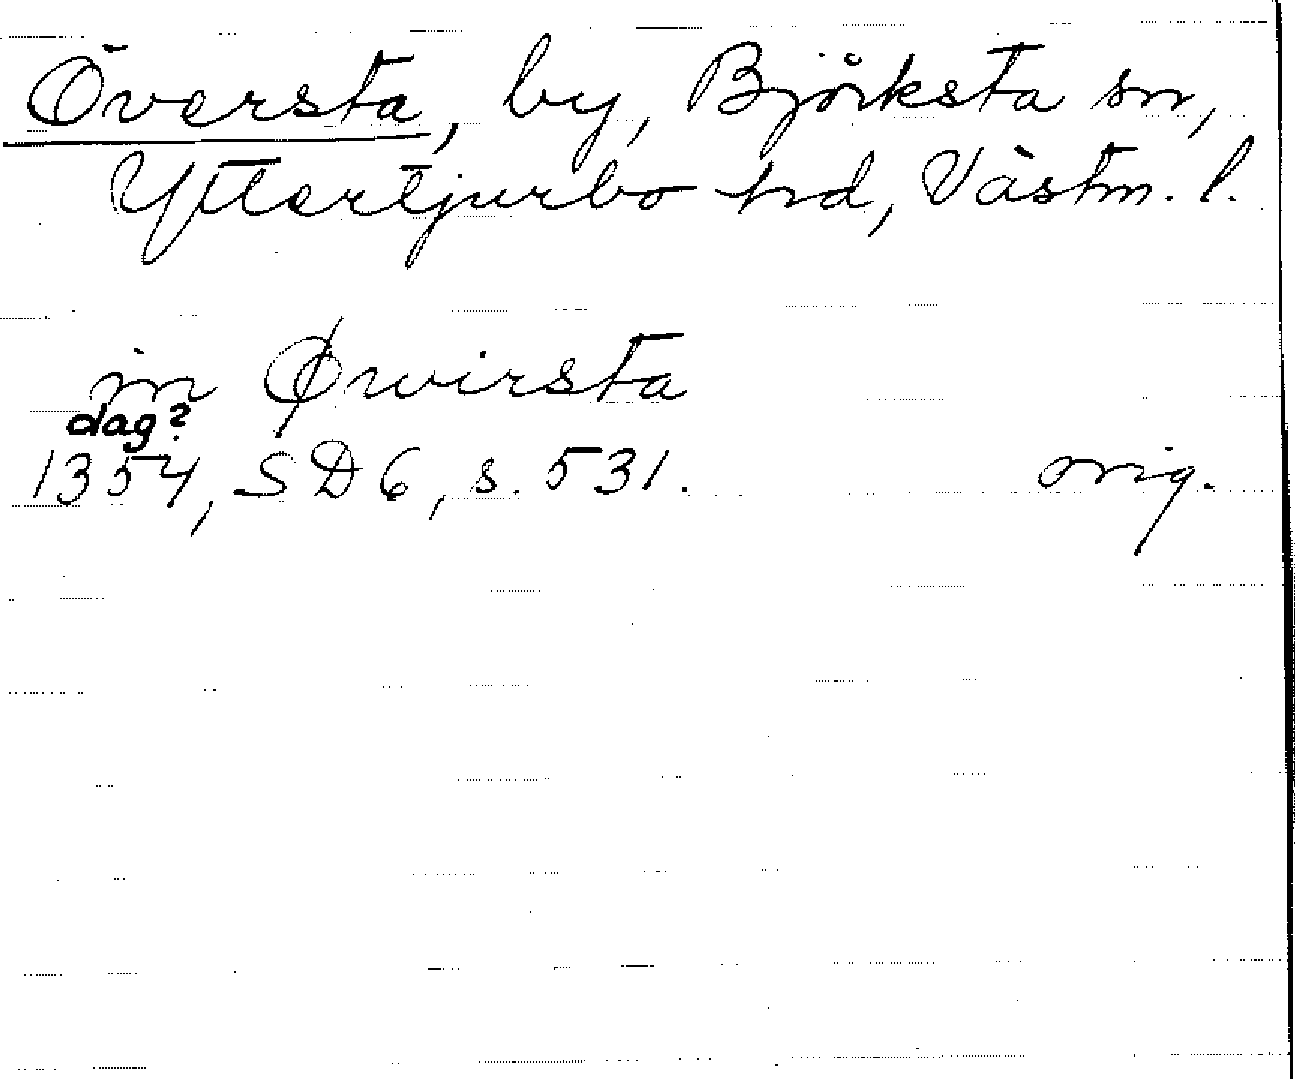 Översta, by, Björksta sn,
Yttertjurbo hd, Västm. l.
in Øwirsta
dag?
1354, SD 6, s. 531. orig.